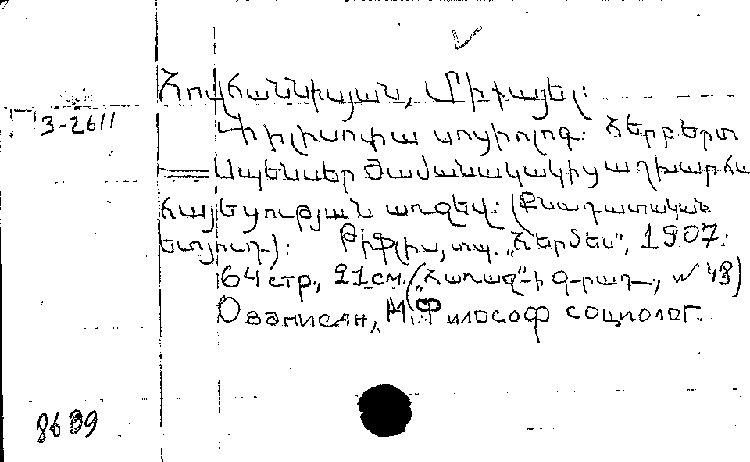 Հովհաննիսյան, Միքայել:
3-2611
Փիլիսոփա սոցիոլոգ: Հերբերտ
Սպենսեր ժամանակակից աշխարհա
հայեցության առջեվ: (Քննադատական
Թիֆլիս, տպ. „Հերմես", 1907.
64 стр, 21 см. („Հառաջ"-ի գ-րադ., № 43)
Ованисян, М. Философ социолог.
8689